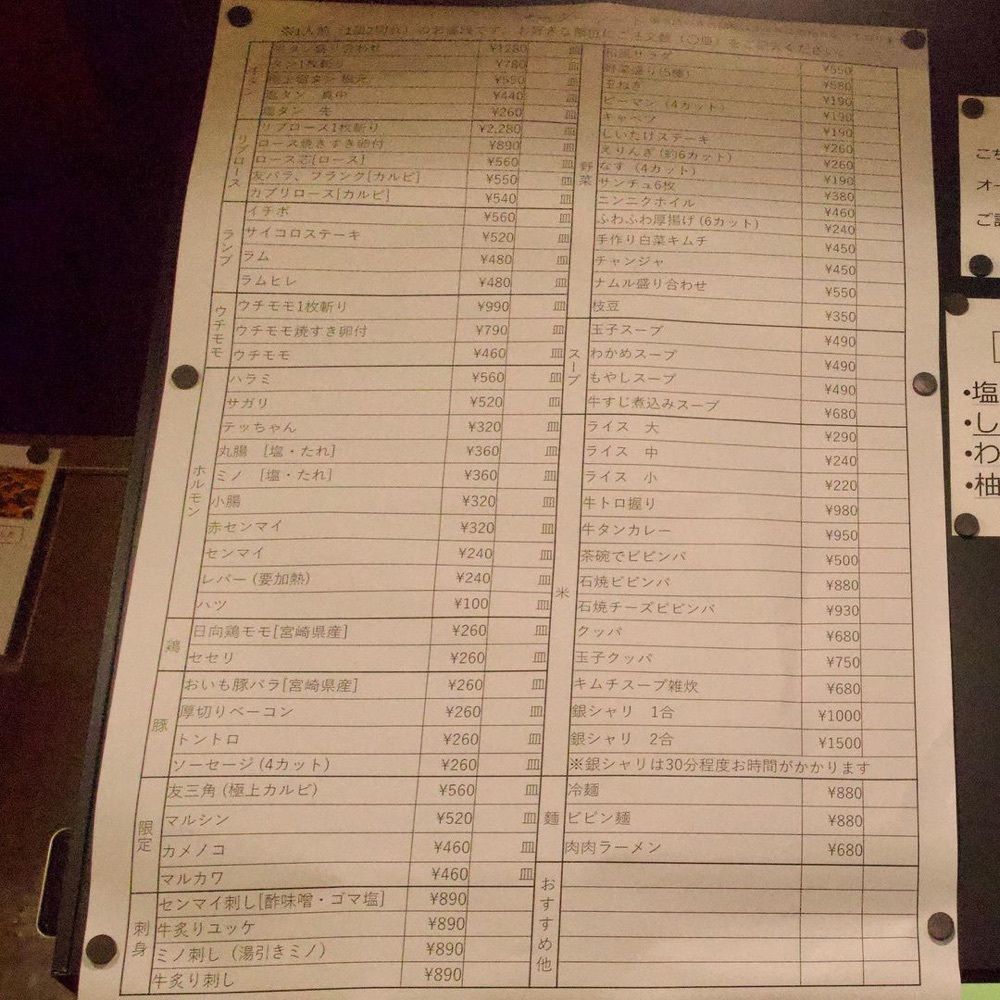 ※1人前(1皿2切れ)のお値段です。お好きな部位にご注文数(〇皿)をご記入ください
タン
塩タン盛り合わせ ¥1280 皿
タン1枚斬り ¥780 皿
極上塩タン 根元 ¥550 皿
塩タン 真中 ¥440 皿
塩タン 先 ¥260 皿
リブロース
リブロース1枚斬り ¥2,280 皿
ロース焼きすき卵付 ¥890 皿
ロース芯[ロース] ¥560 皿
友バラ、フランク[カルビ] ¥550 皿
カブリロース[カルビ] ¥540 皿
ランプ
イチボ ¥560 皿
サイコロステーキ ¥520 皿
ラム ¥480 皿
ラムヒレ ¥480 皿
ウチモモ
ウチモモ1枚斬り ¥990 皿
ウチモモ焼すき卵付 ¥790 皿
ウチモモ ¥460 皿
ホルモン
ハラミ ¥560 皿
サガリ ¥520 皿
テッちゃん ¥320 皿
丸腸 [塩・たれ] ¥360 皿
ミノ [塩・たれ] ¥360 皿
小腸 ¥320 皿
赤センマイ ¥320 皿
センマイ ¥240 皿
レバー(要加熱) ¥240 皿
ハツ ¥100 皿
鶏
日向鶏モモ[宮崎県産] ¥260 皿
セセリ ¥260 皿
豚
おいも豚バラ[宮崎県産] ¥260 皿
厚切りベーコン ¥260 皿
トントロ ¥260 皿
ソーセージ(4カット) ¥260 皿
限定
友三角(極上カルビ) ¥560 皿
マルシン ¥520 皿
カメノコ ¥460 皿
マルカワ ¥460 皿
刺身
センマイ刺し[酢味噌・ゴマ塩] ¥890
牛炙りユッケ ¥890
ミノ刺し(湯引きミノ) ¥890
牛炙り刺し ¥890
野菜
和風サラダ ¥550
野菜盛り(5種) ¥580
玉ねぎ ¥190
ピーマン(4カット) ¥190
キャベツ ¥190
しいたけステーキ ¥260
えりんぎ(約6カット) ¥260
なす(4カット) ¥190
サンチュ6枚 ¥380
ニンニクホイル ¥460
ふわふわ厚揚げ(6カット) ¥240
手作り白菜キムチ ¥450
チャンジャ ¥450
ナムル盛り合わせ ¥550
枝豆 ¥350
スープ
玉子スープ ¥490
わかめスープ ¥490
もやしスープ ¥490
牛すじ煮込みスープ ¥680
米
ライス 大 ¥290
ライス 中 ¥240
ライス 小 ¥220
牛トロ握り ¥980
牛タンカレー ¥950
茶碗でビビンバ ¥500
石焼ビビンバ ¥880
石焼チーズビビンバ ¥930
クッパ ¥680
玉子クッパ ¥750
キムチスープ雑炊 ¥680
銀シャリ 1合 ¥1000
銀シャリ 2合 ¥1500
※銀シャリは30分程度お時間がかかります
麺
冷麺 ¥880
ビビン麺 ¥880
肉肉ラーメン ¥680
おすすめ他
こち
オー
ご記
・塩
・し
・わ
・柚